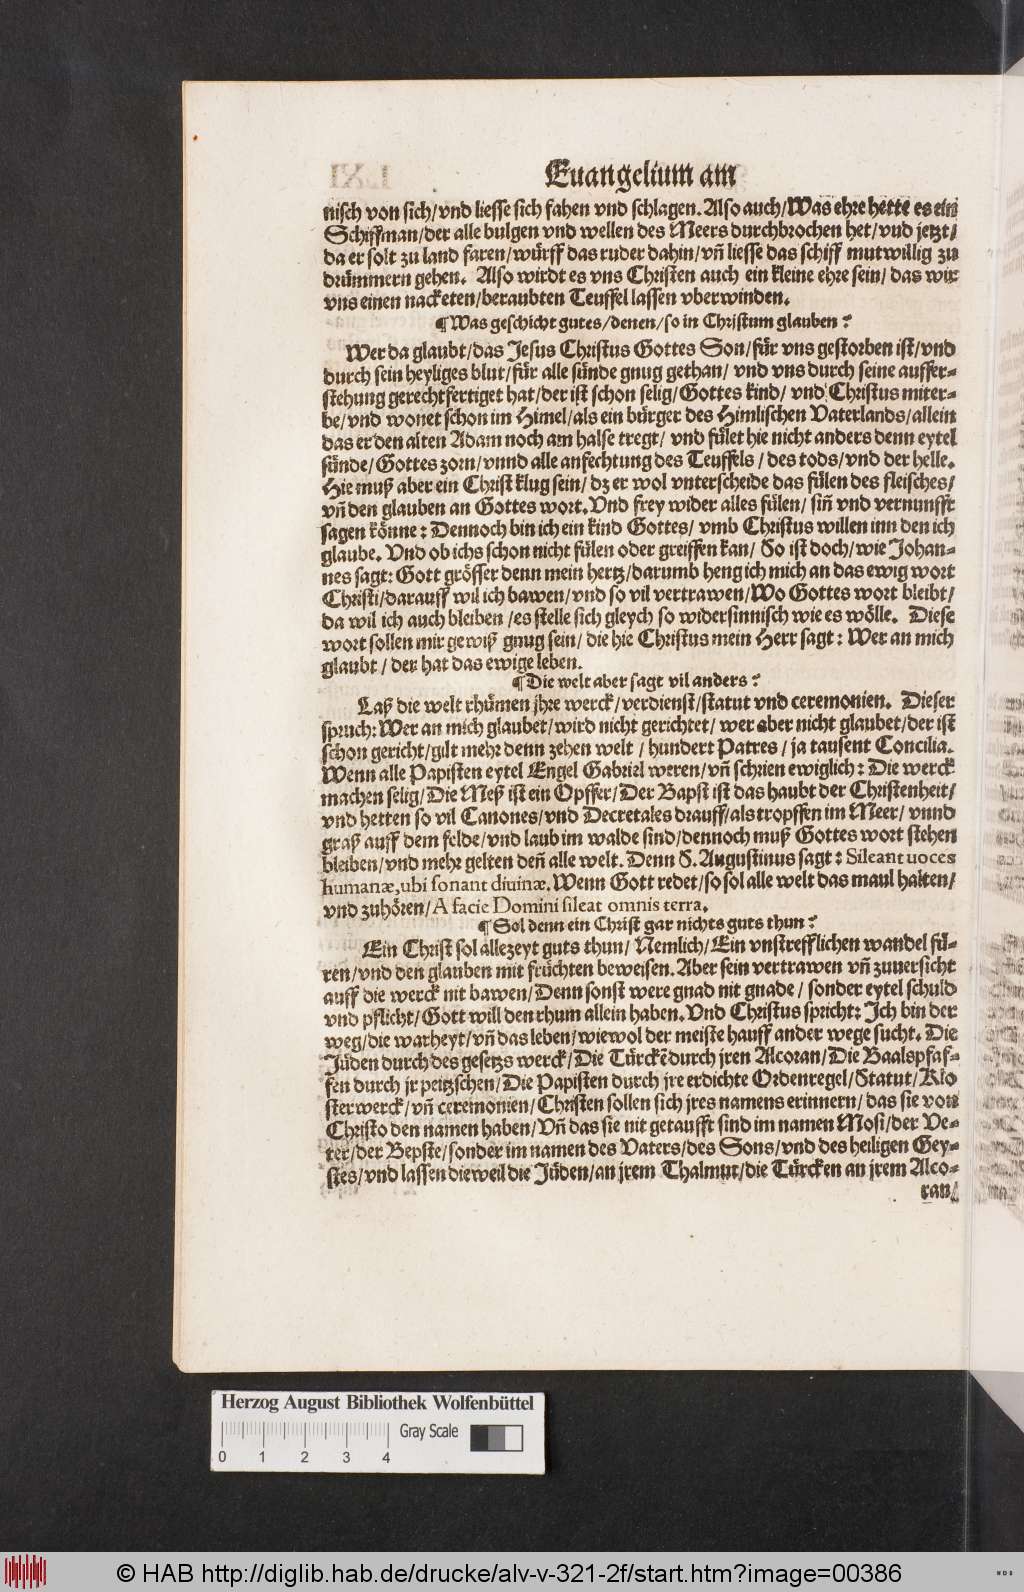 Euangelium am
nisch von sich/vnd liesse sich fahen vnd schlagen. Also auch/Was ehre hette es ein
Schiffman/der alle bulgen vnd wellen des Meers durchbrochen het/vnd jetzt/
da er solt zu land faren/würff das ruder dahin/vn̄ liesse das schiff mutwillig zu
drümmern gehen. Also wirdt es vns Christen auch ein kleine ehre sein/das wir
vns einen nacketen/beraubten Teuffel lassen vberwinden.
¶ Was geschicht gutes/denen/so in Christum glauben?
Wer da glaubt/das Jesus Christus Gottes Son/für vns gestorben ist/vnd
durch sein heyliges blut/für alle sünde gnug gethan/ vnd vns durch seine auffer-
stehung gerechtfertiget hat/der ist schon selig/Gottes kind/ vnd Christus miter-
be/vnd wonet schon im Himel/als ein bürger des Himlischen Vaterlands/allein
das er den alten Adam noch am halse tregt/ vnd fület hie nicht anders denn eytel
sünde/Gottes zorn/vnnd alle anfechtung des Teuffels / des tods/vnd der helle.
Hie muß aber ein Christ klug sein/ dz er wol vnterscheide das fülen des fleisches/
vn̄ den glauben an Gottes wort. Vnd frey wider alles fülen/ sin̄ vnd vernunfft
sagen könne: Dennoch bin ich ein kind Gottes/ vmb Christus willen inn den ich
glaube. Vnd ob ichs schon nicht fülen oder greiffen kan/ So ist doch/wie Johan-
nes sagt: Gott grösser denn mein hertz/darumb heng ich mich an das ewig wort
Christi/darauff wil ich bawen/vnd so vil vertrawen/Wo Gottes wort bleibt/
da wil ich auch bleiben /es stelle sich gleych so widersinnisch wie es wölle. Diese
wort sollen mir gewiß gnug sein/ die hie Christus mein Herr sagt: Wer an mich
glaubt / der hat das ewige leben.
¶ Die welt aber sagt vil anders?
Laß die welt rhümen jhre werck/verdienst/statut vnd ceremonien. Dieser
spruch: Wer an mich glaubet/wird nicht gerichtet/ wer aber nicht glaubet/der ist
schon gericht/gilt mehr denn zehen welt / hundert Patres / ja tausent Concilia.
Wenn alle Papisten eytel Engel Gabriel weren/vn̄ schrien ewiglich: Die werck
machen selig/Die Meß ist ein Opffer/Der Bapst ist das haubt der Christenheit/
vnd hetten so vil Canones/vnd Decretales drauff/als tropffen im Meer/ vnnd
graß auff dem felde/vnd laub im walde sind/dennoch muß Gottes wort stehen
bleiben/vnd mehr gelten den̄ alle welt. Denn S. Augustinus sagt: Sileant uoces
humanæ, ubi sonant diuinæ. Wenn Gott redet/so sol alle welt das maul halten/
vnd zuhören/A facie Domini sileat omnis terra.
¶ Sol denn ein Christ gar nichts guts thun?
Ein Christ sol allezeyt guts thun/ Nemlich/Ein vnstrefflichen wandel fü-
ren/vnd den glauben mit früchten beweisen. Aber sein vertrawen vn̄ zuuersicht
auff die werck nit bawen/Denn sonst were gnad nit gnade / sonder eytel schuld
vnd pflicht/Gott will den rhum allein haben. Vnd Christus spricht: Ich bin der
weg/die warheyt/vn̄ das leben/wiewol der meiste hauff ander wege sucht. Die
Jüden durch des gesetzs werck/Die Türckē durch jren Alcoran/Die Baalspfaf-
fen durch jr peitzschen/Die Papisten durch jre erdichte Ordenregel/Statut/Klo
sterwerck/vn̄ ceremonien/Christen sollen sich jres namens erinnern/das sie von
Christo den namen haben/Vn̄ das sie nit getaufft sind im namen Mosi/der Ve-
ter/der Bepste/sonder im namen des Vaters/des Sons/vnd des heiligen Gey-
stes/vnd lassen dieweil die Jüden/an jrem Thalmut/die Türcken an jrem Alco-
ran/
Herzog August Bibliothek Wolfenbüttel
Gray Scale
0 1 2 3 4
© HAB http://diglib.hab.de/drucke/alv-v-321-2f/start.htm?image=00386